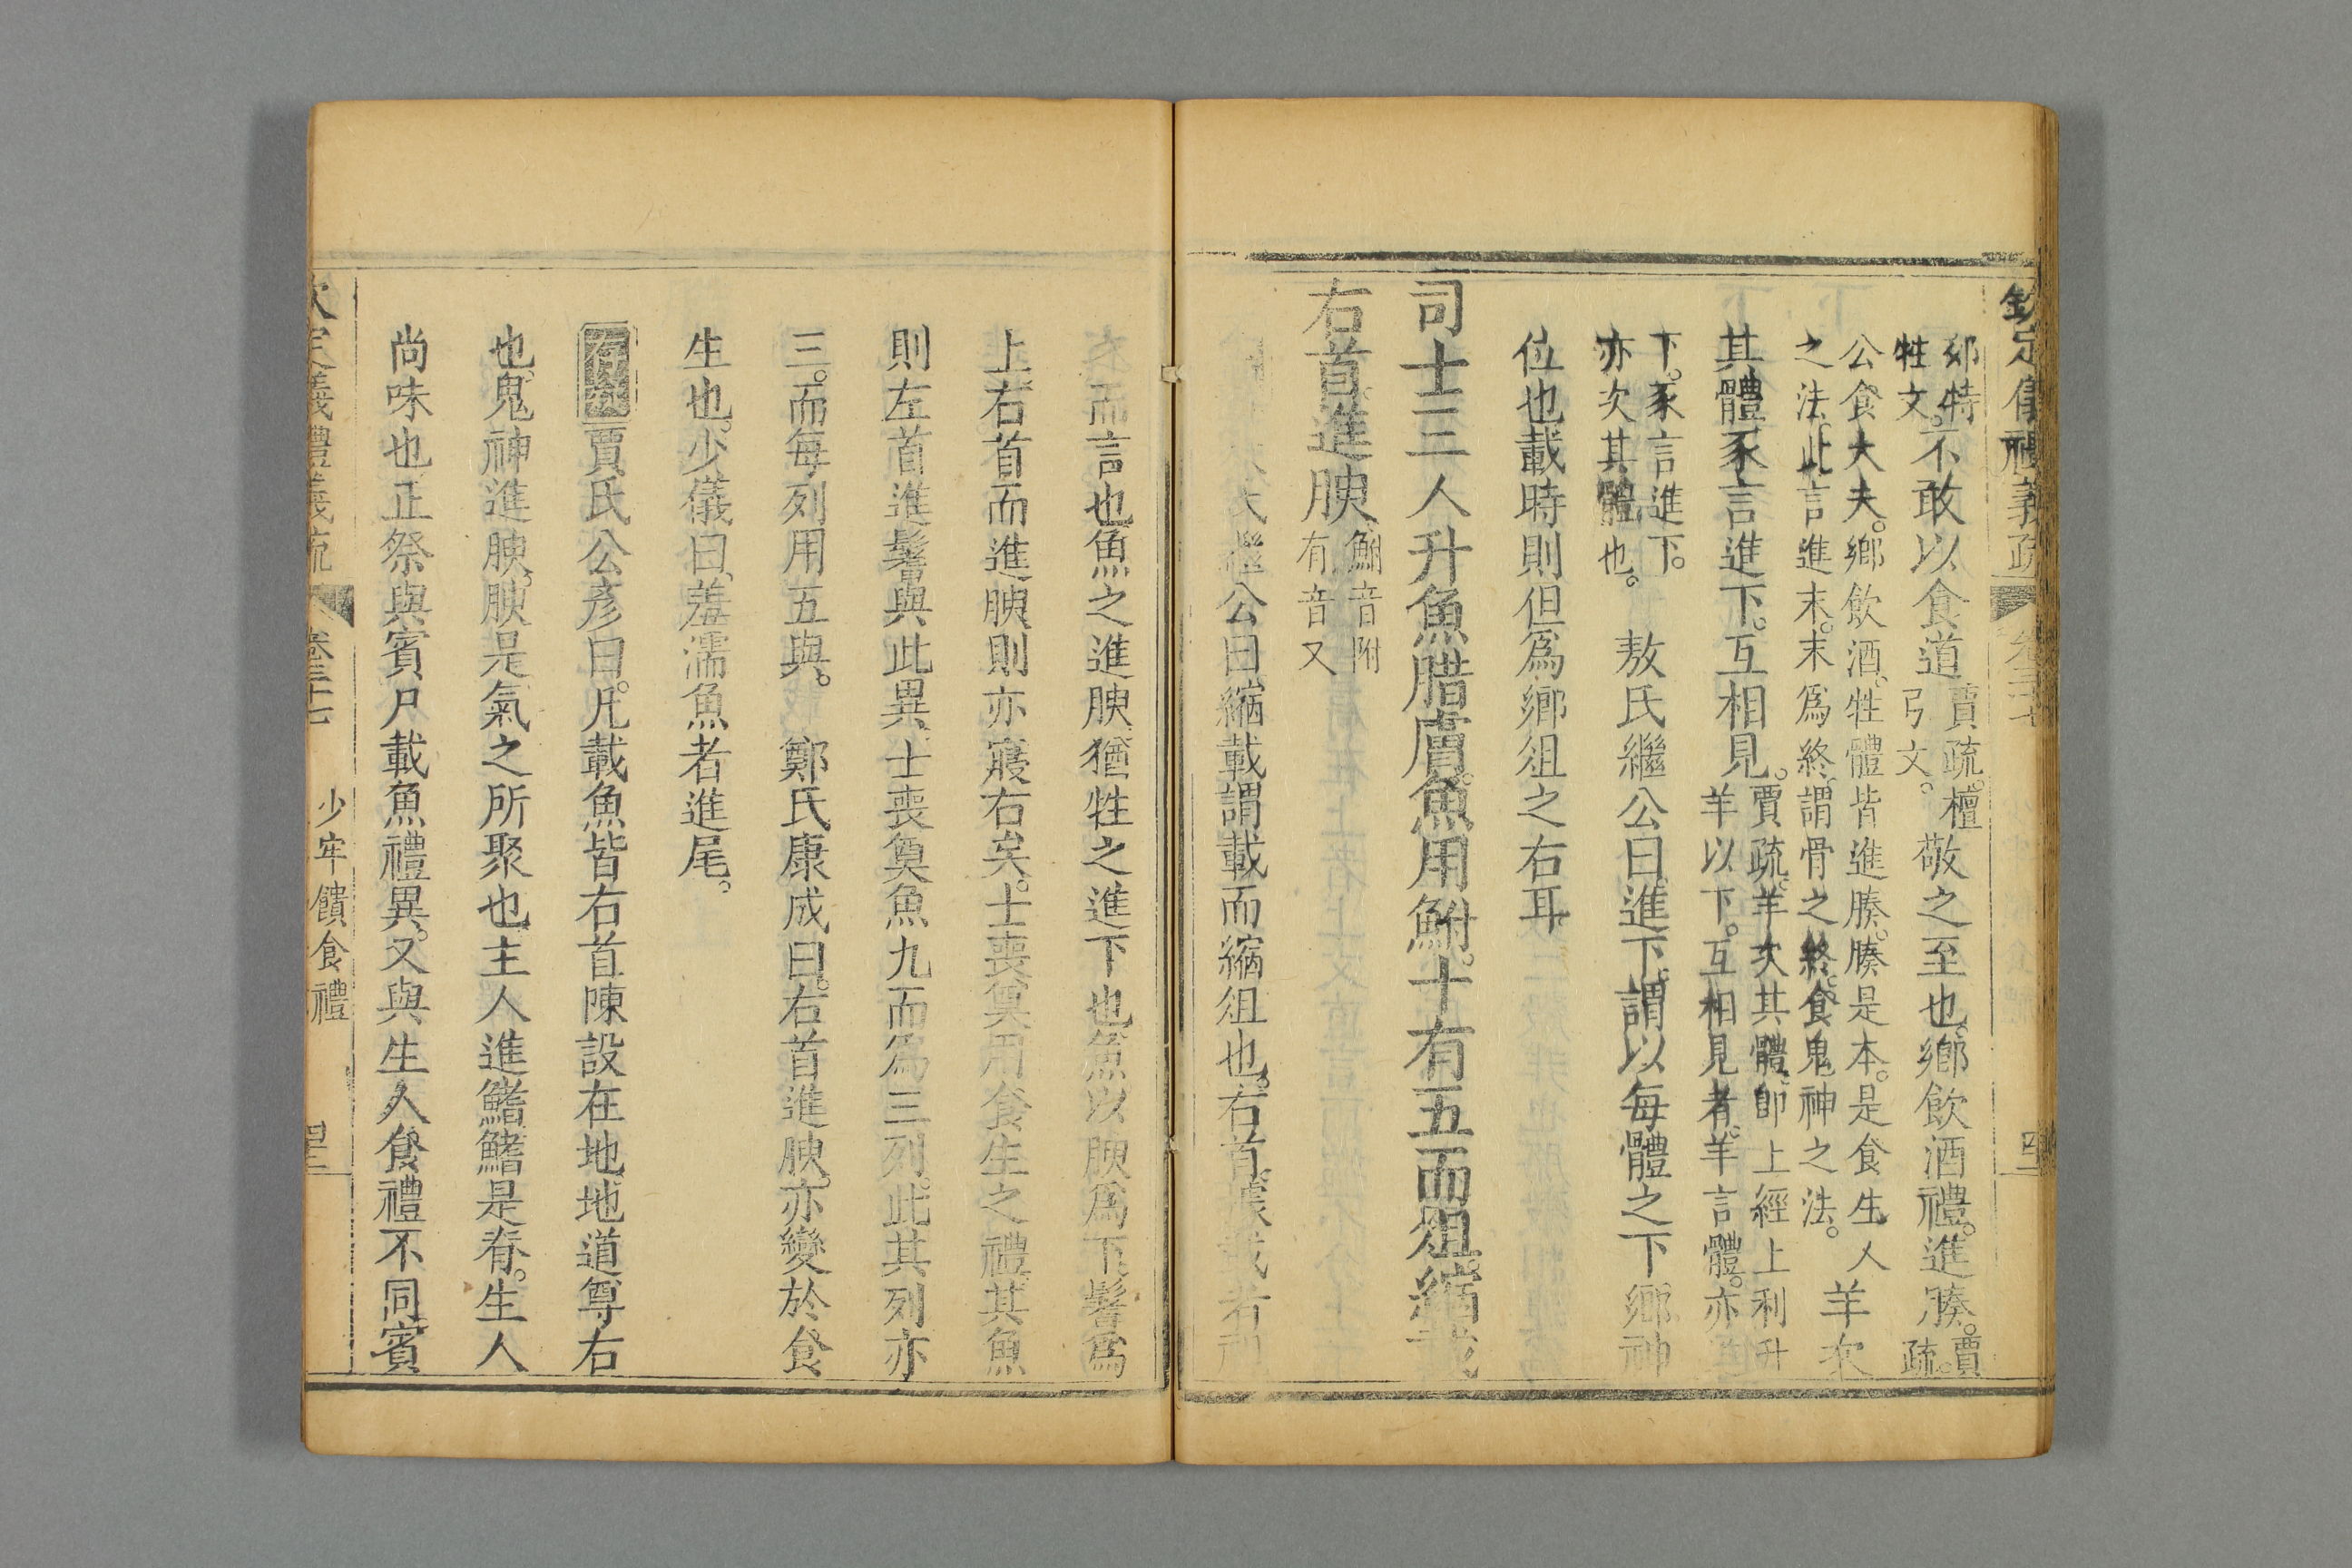 欽定儀禮義疏 卷三十七
郊特
牲文。不敢以食道
賈疏。檀
弓文。敬之至也。鄉飲酒禮。進腠。
賈
疏。
公食大夫。鄉飲酒。牲體皆進腠。腠是本。是食生人
之法。此言進末。末爲終。謂骨之終。食鬼神之法。羊次
其體豕言進下。互相見。
賈疏。羊次其體。卽上經上利升
羊以下。互相見者。羊言體。亦
下。豕言進下。
亦次其體也。 敖氏繼公曰。進下。謂以每體之下鄉神
位也。載時則但爲鄉俎之右耳。
司士三人升魚腊膚。魚用鮒。十有五而俎。縮載
右首。進腴
鮒音附
有音又
氏繼公曰。縮載謂載而縮俎也。右首。據載者
而言也。魚之進腴。猶牲之進下也。魚以腴爲下。鬐爲
上。右首而進腴。則亦寢右矣。士喪奠用食生之禮。其魚
則左首進鬐。與此異。士喪奠魚九而爲三列。此其列亦
三。而每列用五與。 鄭氏康成曰。右首進腴。亦變於食
生也。少儀曰。羞濡魚者進尾。
賈氏公彥曰。凡載魚皆右首。陳設在地。地道尊右
也。鬼神進腴。腴是氣之所聚也。主人進鰭。鰭是脊。生人
尚味也。正祭與賓尸載魚禮異。又與生人食禮不同。賓
欽定儀禮義疏 卷三十七 少牢饋食禮